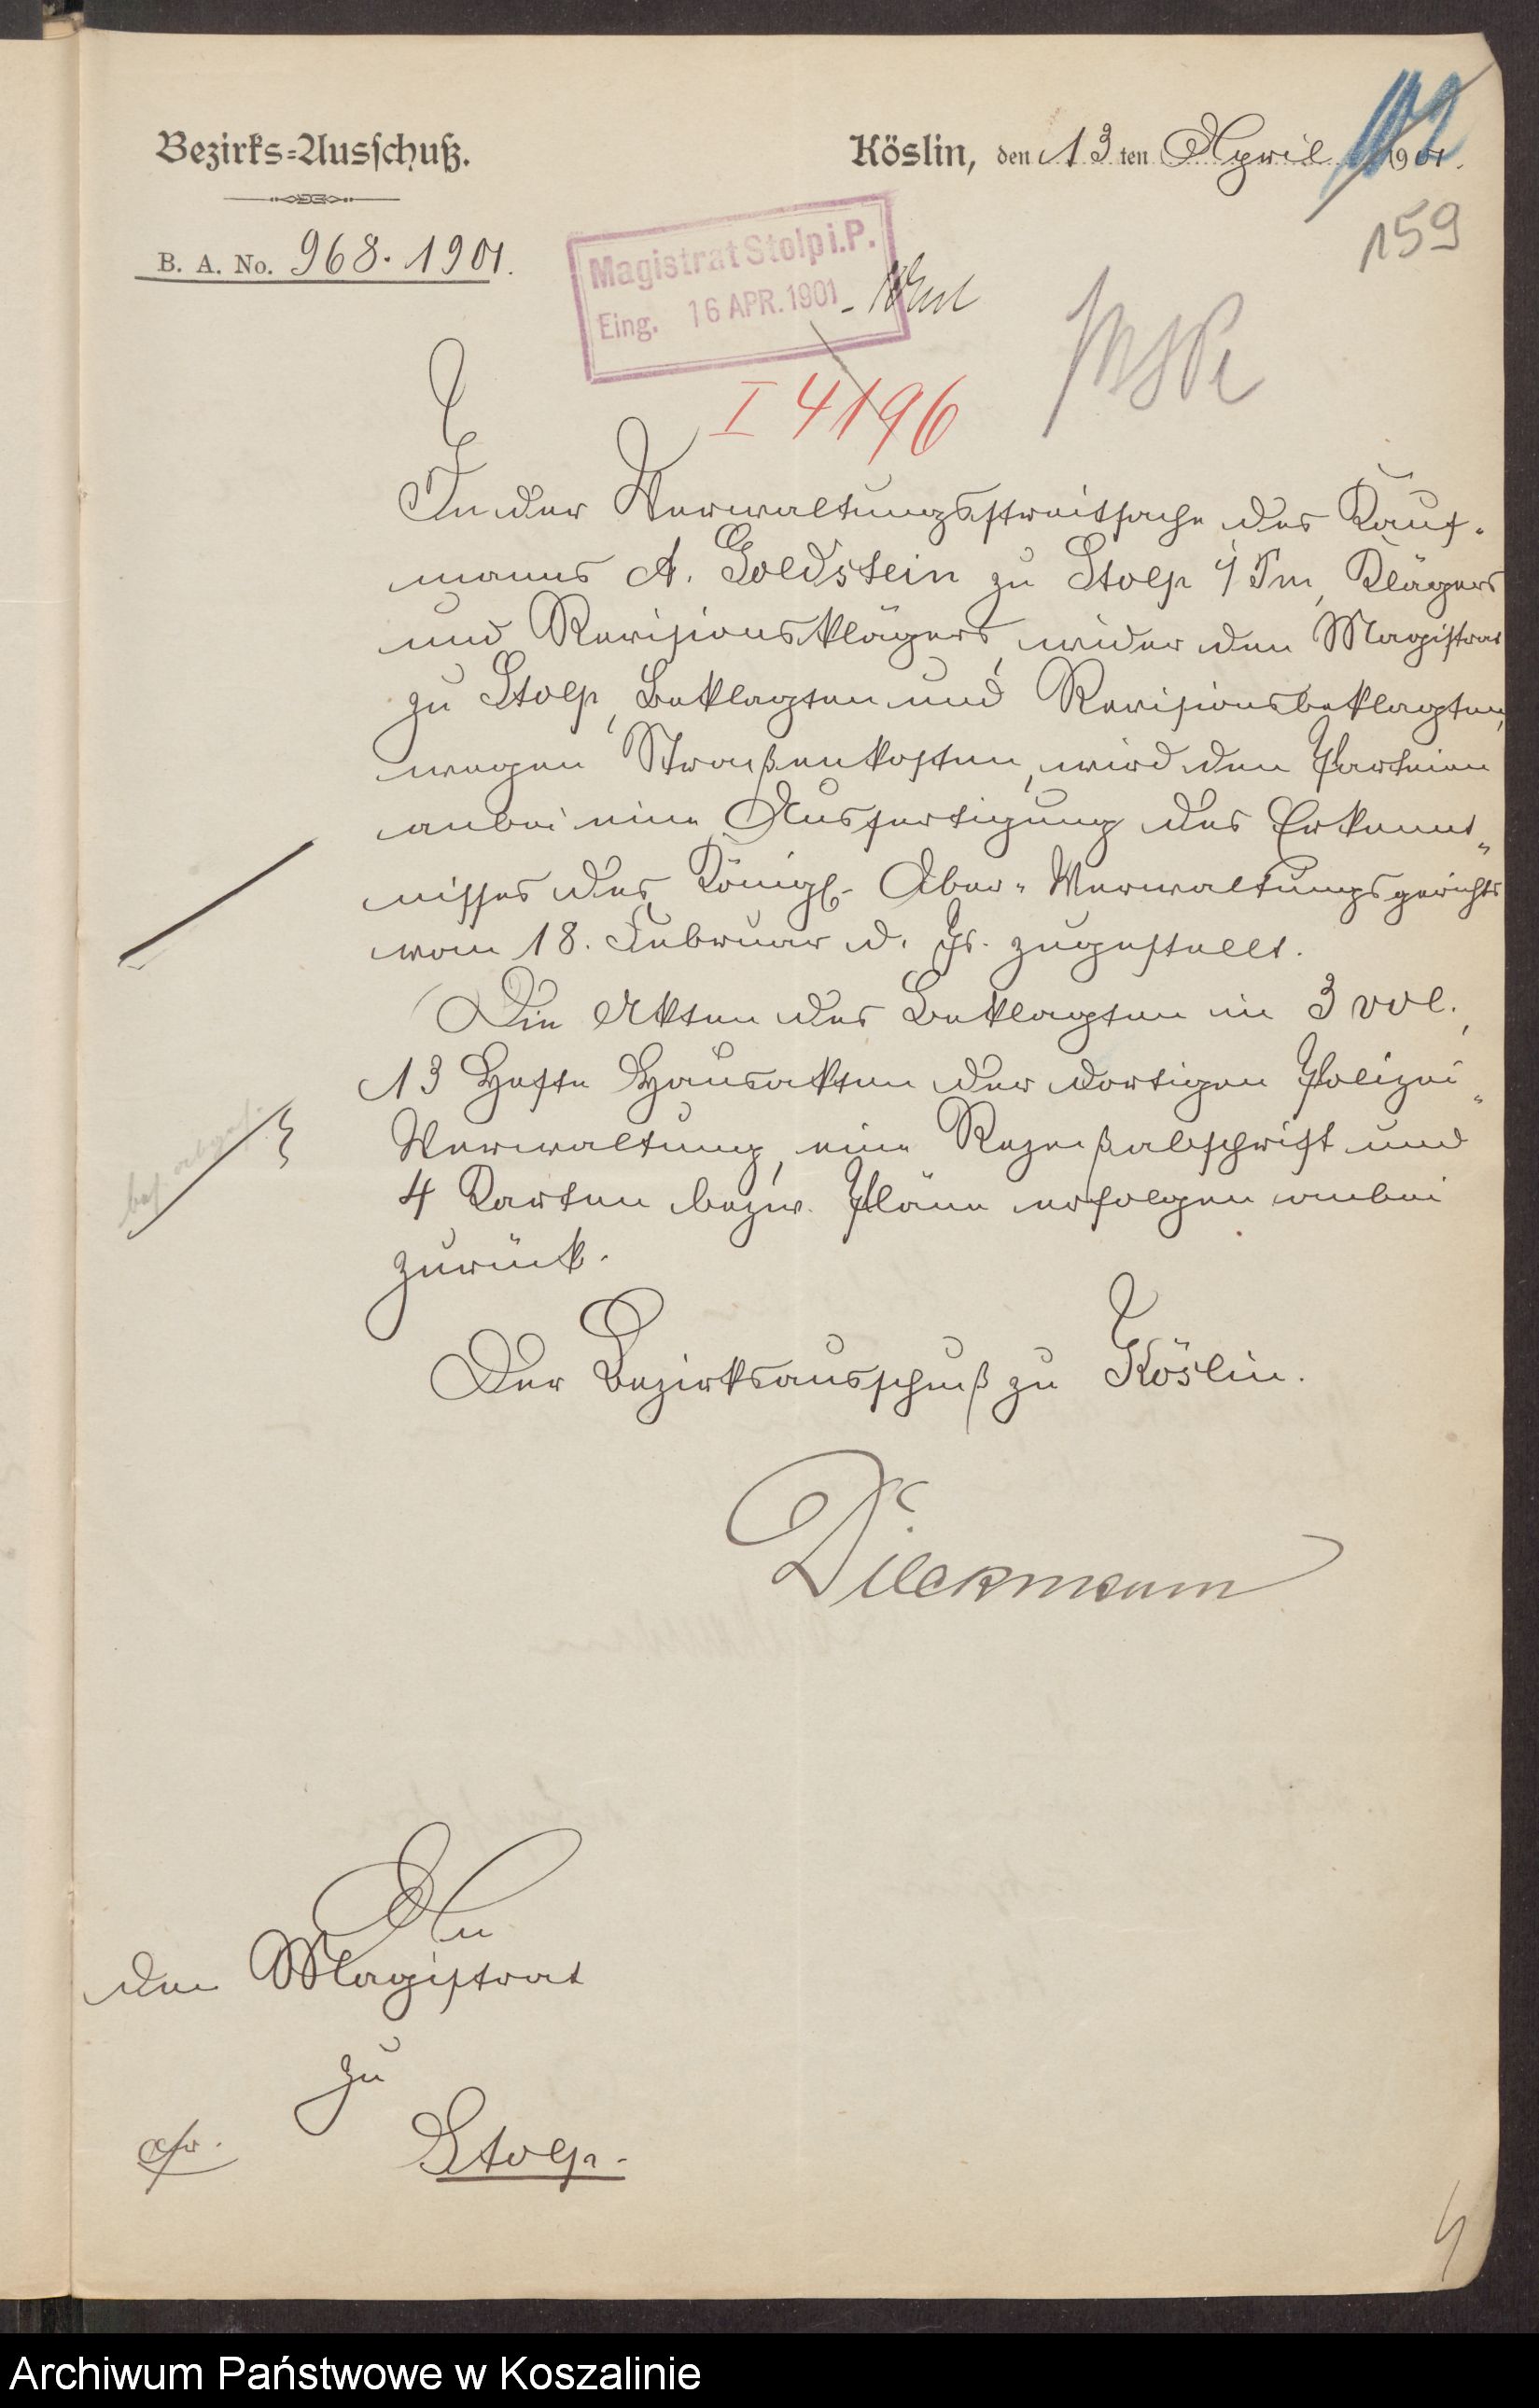 Bezirks-Ausschuß.
Köslin, den 13 ten April 1901.
159
B. A. No. 968. 1901.
Magistrat Stolp i. P.
Eing. 16 APR. 1901
I 4196
In der Verwaltungsstreitsache des Kauf-
manns A. Goldstein zu Stolp i/Pm, Klägers
und Revisionsklägers, wider den Magistrat
zu Stolp, Beklagten und Revisionsbeklagten,
wegen Straßenkosten, wird den Parteien
anbei eine Ausfertigung des Erkennt-
nisses des Königl. Ober-Verwaltungsgerichts
vom 18. Februar d. Js. zugestellt.
Die Akten des Beklagten in 3 vol.,
13 Hefte Hausakten der dortigen Polizei-
Verwaltung, eine Rezeßabschrift und
4 Karten bezw. Pläne erfolgen anbei
zurück.
Der Bezirksausschuß zu Köslin.
Dieckmann
An
den Magistrat
zu
Stolp.
Archiwum Państwowe w Koszalinie